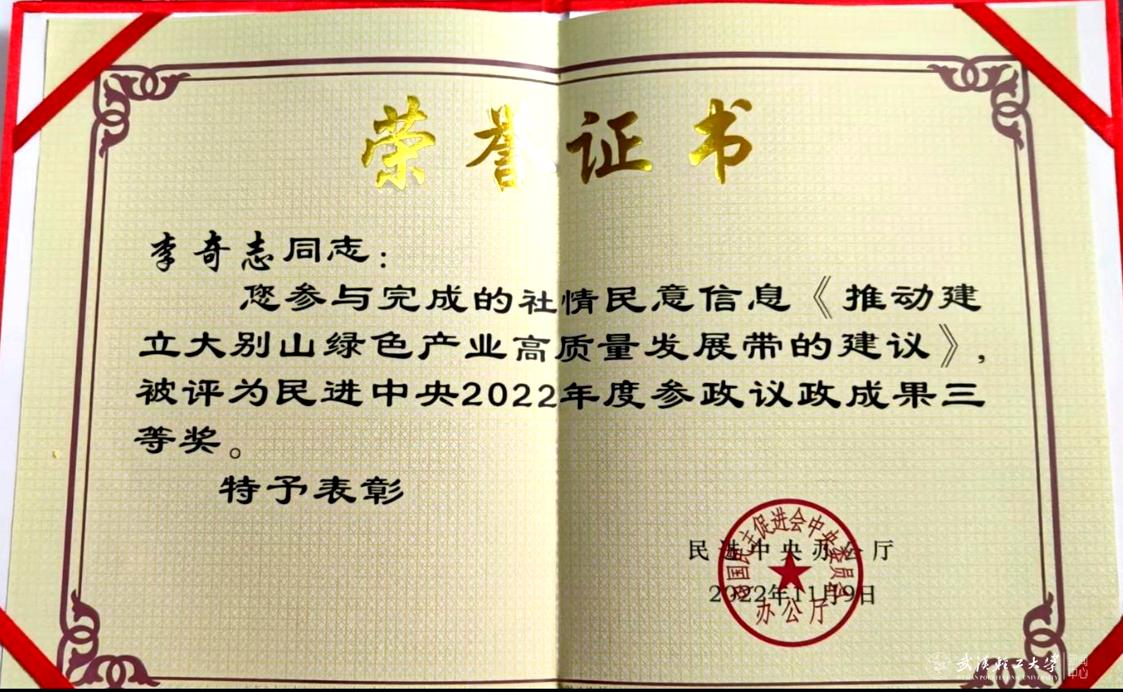 荣誉证书
李奇志同志：
您参与完成的社情民意信息《推动建
立大别山绿色产业高质量发展带的建议》，
被评为民进中央2022年度参政议政成果三
等奖。
特予表彰
民进中央办公厅
2022年11月9日
中国民主促进会中央委员会
办公厅
武汉轻工大学